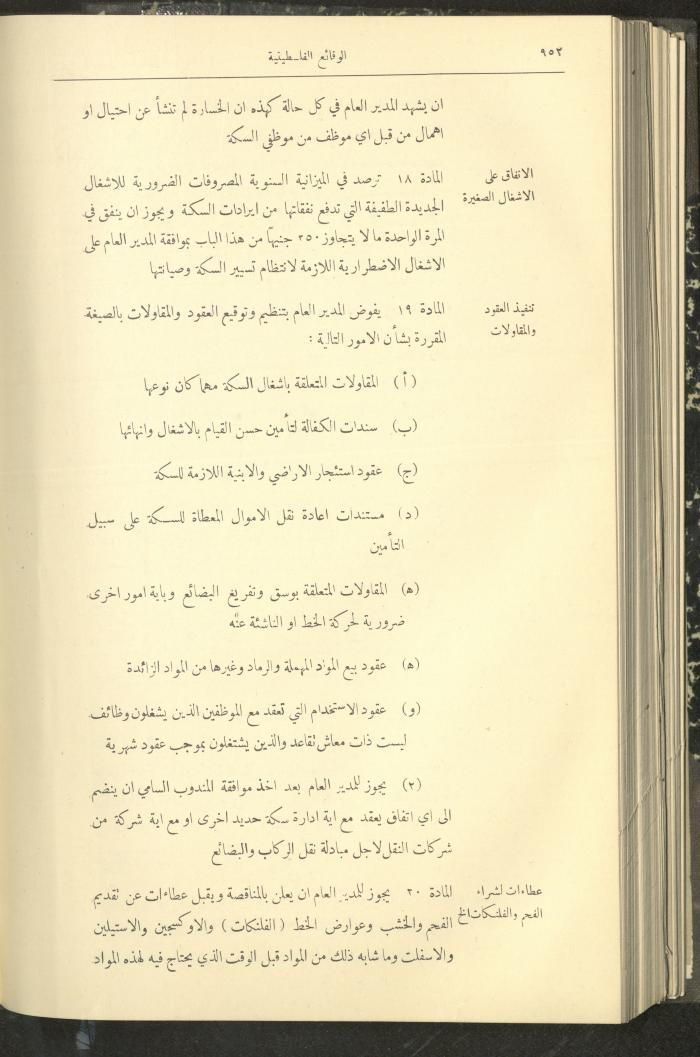 ٩٥٣
الوقائع الفلسطينية
ان يشهد المدير العام في كل حالة كهذه ان الخسارة لم تنشأ عن احتيال او
اهمال من قبل اي موظف من موظفي السكة
الانفاق على
الاشغال الصغيرة
المادة ١٨ ترصد في الميزانية السنوية المصروفات الضرورية للاشغال
الجديدة الطفيفة التي تدفع نفقاتها من ايرادات السكة ويجوز ان ينفق في
المرة الواحدة ما لا يتجاوز ٢٥٠ جنيهاً من هذا الباب بموافقة المدير العام على
الاشغال الاضطرارية اللازمة لانتظام تسيير السكة وصيانتها
تنفيذ العقود
والمقاولات
المادة ١٩ يفوض المدير العام بتنظيم وتوقيع العقود والمقاولات بالصيغة
المقررة بشأن الامور التالية :
(أ) المقاولات المتعلقة باشغال السكة مهما كان نوعها
(ب) سندات الكفالة لتأمين حسن القيام بالاشغال وانهائها
(ج) عقود استئجار الاراضي والابنية اللازمة للسكة
(د) مستندات اعادة نقل الاموال المعطاة للسكة على سبيل
التأمين
(ه) المقاولات المتعلقة بوسق وتفريغ البضائع وباية امور اخرى
ضرورية لحركة الخط او الناشئة عنه
(ه) عقود بيع المواد المهملة والرماد وغيرها من المواد الزائدة
(و) عقود الاستخدام التي تعقد مع الموظفين الذين يشغلون وظائف
ليست ذات معاش تقاعد والذين يشتغلون بموجب عقود شهرية
(٢) يجوز للمدير العام بعد اخذ موافقة المندوب السامي ان ينضم
الى اي اتفاق يعقد مع اية ادارة سكة حديد اخرى او مع اية شركة من
شركات النقل لاجل مبادلة نقل الركاب والبضائع
عطاءات لشراء
الفحم والفلنكات الخ
المادة ٢٠ يجوز للمدير العام ان يعلن بالمناقصة ويقبل عطاءات عن تقديم
الفحم والخشب وعوارض الخط ( الفلنكات ) والاوكسجين والاستيلين
والاسفلت وما شابه ذلك من المواد قبل الوقت الذي يحتاج فيه لهذه المواد